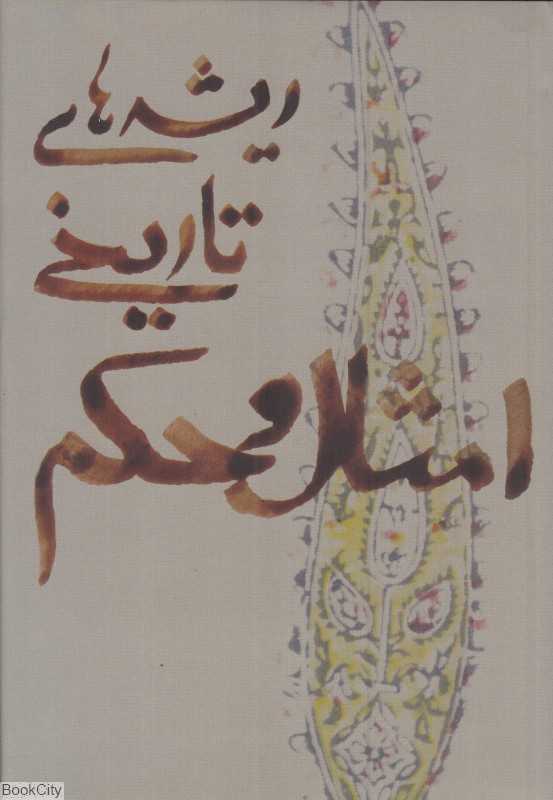 ریشه های
تاریخی
امثال و حکم
BookCity